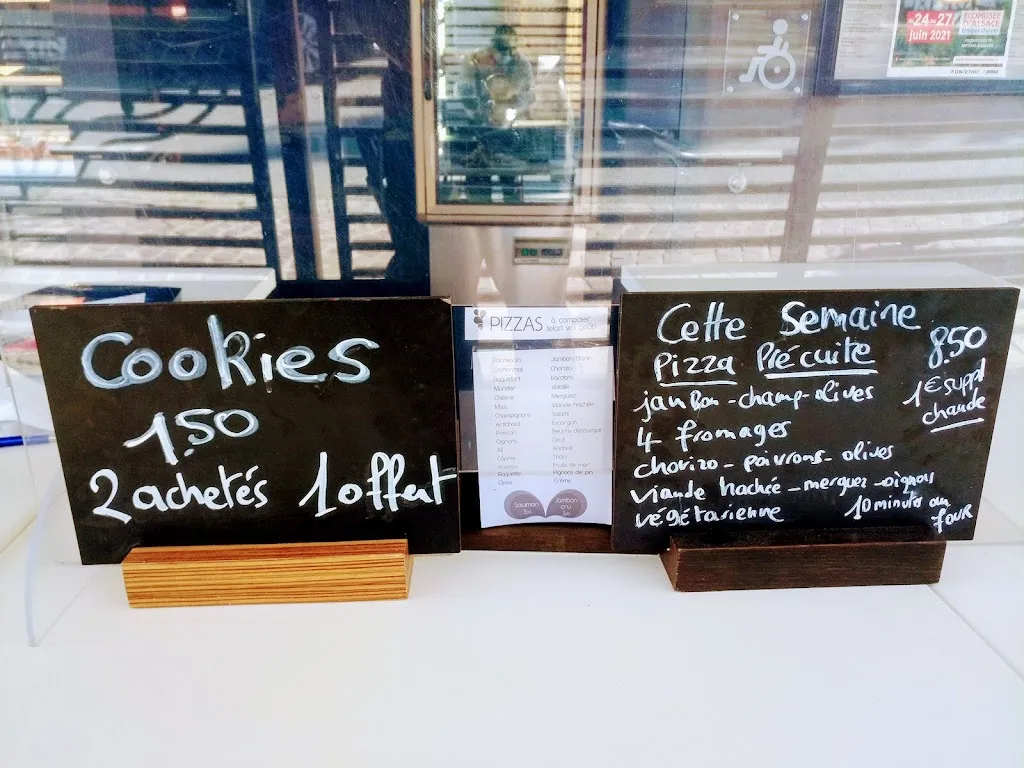 24 au 27
juin 2021
ECOMUSÉE
D'ALSACE
Cookies
1,50
2 achetés 1 offert
PIZZAS à composer
selon vos goûts
Parmesan
Emmental
Roquefort
Munster
Chèvre
Maïs
Champignons
Artichaut
Poivron
Oignons
Ail
Câpres
Roquette
Olives
Jambon blanc
Chorizo
Lardons
Volaille
Merguez
Viande hachée
Salami
Escargot
Beurre d'escargot
Oeuf
Anchois
Thon
Fruits de mer
Pignons de pin
Crème
Saumon
Jambon
cru
Cette Semaine
Pizza Précuite
8.50
1€ suppl
chaude
jambon - champ - olives
4 fromages
chorizo - poivrons - olives
viande hachée - merguez - oignons
végétarienne
10 minutes au
four